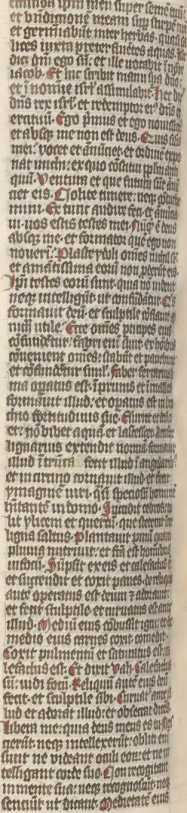 spiritum meum super semen tuum
et benedictionem meam super stirpem tuam
et germinabunt inter herbas: quasi sa
lices iuxta preterfluentes aquas. Iste
dicet dñi ego sum: et ille vocabit ĩ noĩe
iacob. Et hic scribet manu sua dño:
et ĩ nomine isrl' assimilabit̃. Hec dicit
dñs rex isrl' et redemptor eiꝰ dñs ex
ercituũ. Ego primus et ego novissimꝰ
et absqꝫ me non est deus. Quis similis
mei: vocet et annũciet: et ordinẽ expo
nat michi: ex quo cõstitui pp̃lm anti
quũ. Ventura et que futura sũt annũ
ciet eis. Nolite timere: neqꝫ cõturbe
mini. Ex tunc audire te feci et annũcia
vi: vos estis testes mei. Nũqd' ẽ deus
absqꝫ me: et formator quẽ ego non
noverĩ. Plaste ydoli omẽs nichil sũt
et amãtissima eorũ non proderũt eis.
Ip̃i testes eorũ sunt: quia nõ vident
neqꝫ intelligũt: ut confundãtur. Quis
formavit deũ: et sculptile cõflavit ad
nichil utile. Ecce omẽs participes eius
cõfundẽtur: fabri enĩ sunt ex hominibꝰ
conveniẽt omẽs: stabũt et pavebunt
et cõfundẽtur simul. Faber ferrariꝰ li
ma opatus est: ĩ prunis et ĩ malleis
formavit illud: et opatus est in bra
chio fortitudinis sue. Esuriet et deficiet
et: nõ bibet aquã et lassescet. Artifex
lignarius extendit normã: formavit
illud ĩ runcina: fecit illud ĩ angularibꝰ
et in circino tornavit illud: et fecit
ymaginẽ viri: q̃si speciosũ hominẽ
hitantẽ in domo. Succidit cedros: tu
lit ylicem et quercũ: que steterat inter
ligna saltus. Plantavit pinũ quam
pluvia nutrivit: et fc̃a est hominibꝰ
in focũ. Sũpsit ex eis et calefactus est
et succendit et coxit panes. de reliquo
autẽ operatus est deum et adoravit:
et fecit sculptile et curvatus est ante
illud. Mediũ eius cõbussit igni: et de
medio eius carnes coxit et comedit:
Coxit pulmentũ et saturatus est: et ca
lefactus est. Et dixit vah: Calefactus
sũ: vidi focũ. Reliquũ autẽ eius deũ
fecit: et sculptile sibi. Curvat̃ ante il
lud et adorat illud: et obsecrat dicẽs.
Libera me: quia deus meus es tu. Nes
cierũt neqꝫ intellexerũt: obliti enĩ
sunt ne videant oculi eorũ: et ne in
telligant corde suo. Non recogitant
in mente sua: neqꝫ cognoscũt neqꝫ
senciũt ut dicant. Medietatẽ eius